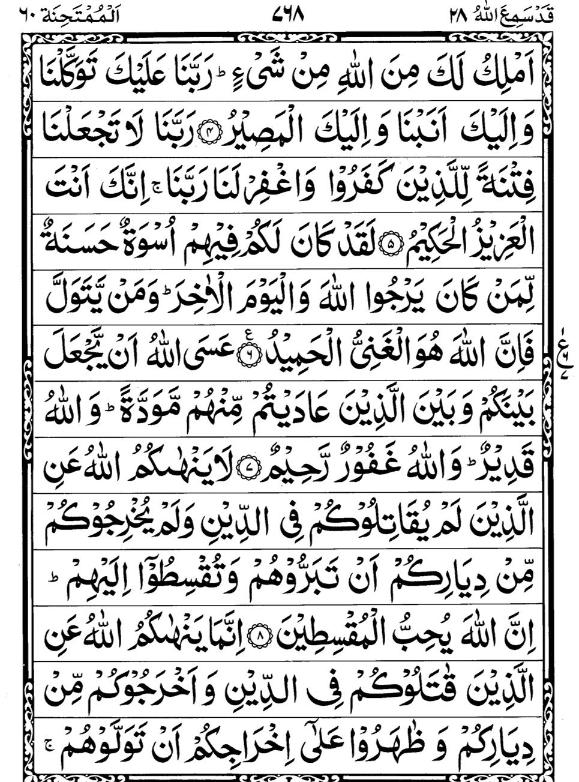 قَدْ سَمِعَ اللهُ ٢٨ ٧٦٨ اَلْمُمْتَحِنَة ٦٠
اَمْلِكُ لَكَ مِنَ اللهِ مِنْ شَىْءٍ ؕ رَبَّنَا عَلَيْكَ تَوَكَّلْنَا
وَاِلَيْكَ اَنَبْنَا وَاِلَيْكَ الْمَصِيْرُ ﴿٤﴾ رَبَّنَا لَا تَجْعَلْنَا
فِتْنَةً لِّلَّذِيْنَ كَفَرُوْا وَاغْفِرْ لَنَا رَبَّنَا ۚ اِنَّكَ اَنْتَ
الْعَزِيْزُ الْحَكِيْمُ ﴿٥﴾ لَقَدْ كَانَ لَكُمْ فِيْهِمْ اُسْوَةٌ حَسَنَةٌ
لِّمَنْ كَانَ يَرْجُوا اللهَ وَالْيَوْمَ الْاٰخِرَ ؕ وَمَنْ يَّتَوَلَّ
فَاِنَّ اللهَ هُوَ الْغَنِىُّ الْحَمِيْدُ ﴿٦﴾ عَسَى اللهُ اَنْ يَّجْعَلَ
بَيْنَكُمْ وَبَيْنَ الَّذِيْنَ عَادَيْتُمْ مِّنْهُمْ مَّوَدَّةً ؕ وَاللهُ
قَدِيْرٌ ؕ وَاللهُ غَفُوْرٌ رَّحِيْمٌ ﴿٧﴾ لَا يَنْهٰىكُمُ اللهُ عَنِ
الَّذِيْنَ لَمْ يُقَاتِلُوْكُمْ فِى الدِّيْنِ وَلَمْ يُخْرِجُوْكُمْ
مِّنْ دِيَارِكُمْ اَنْ تَبَرُّوْهُمْ وَتُقْسِطُوْٓا اِلَيْهِمْ ؕ
اِنَّ اللهَ يُحِبُّ الْمُقْسِطِيْنَ ﴿٨﴾ اِنَّمَا يَنْهٰىكُمُ اللهُ عَنِ
الَّذِيْنَ قٰتَلُوْكُمْ فِى الدِّيْنِ وَاَخْرَجُوْكُمْ مِّنْ
دِيَارِكُمْ وَظٰهَرُوْا عَلٰٓى اِخْرَاجِكُمْ اَنْ تَوَلَّوْهُمْ ۚ